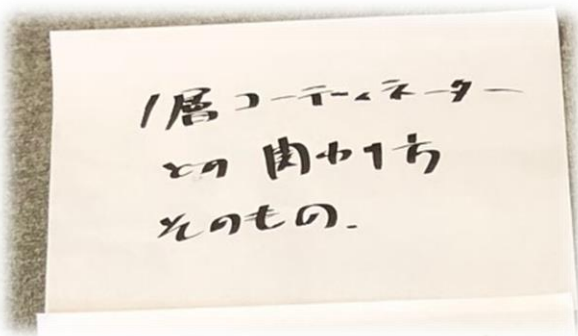 1層コーディネーター
との関わり方
そのもの.